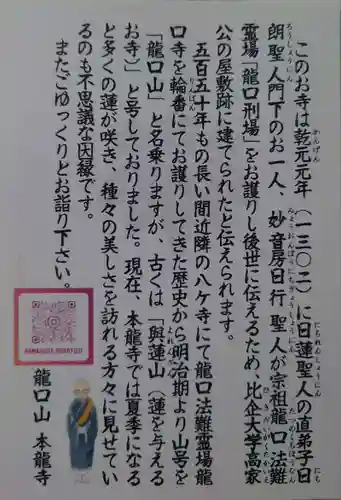 このお寺は乾元元年（一三〇二）に日蓮聖人の直弟子日
朗聖人門下のお一人、妙音房日行聖人が宗祖龍口法難
霊場「龍口刑場」をお護りし後世に伝えるため、比企大学高家
公の屋敷跡に建てられたと伝えられます。
五百五十年もの長い間近隣の八ケ寺にて龍口法難霊場龍
口寺を輪番にてお護りしてきた歴史から明治期より山号を
「龍口山」と名乗りますが、古くは「興蓮山（蓮を与える
お寺）」と号しておりました。現在、本龍寺では夏季になる
と多くの蓮が咲き、種々の美しさを訪れる方々に見せてい
るのも不思議な因縁です。
またごゆっくりとお詣り下さい。
龍口山 本龍寺